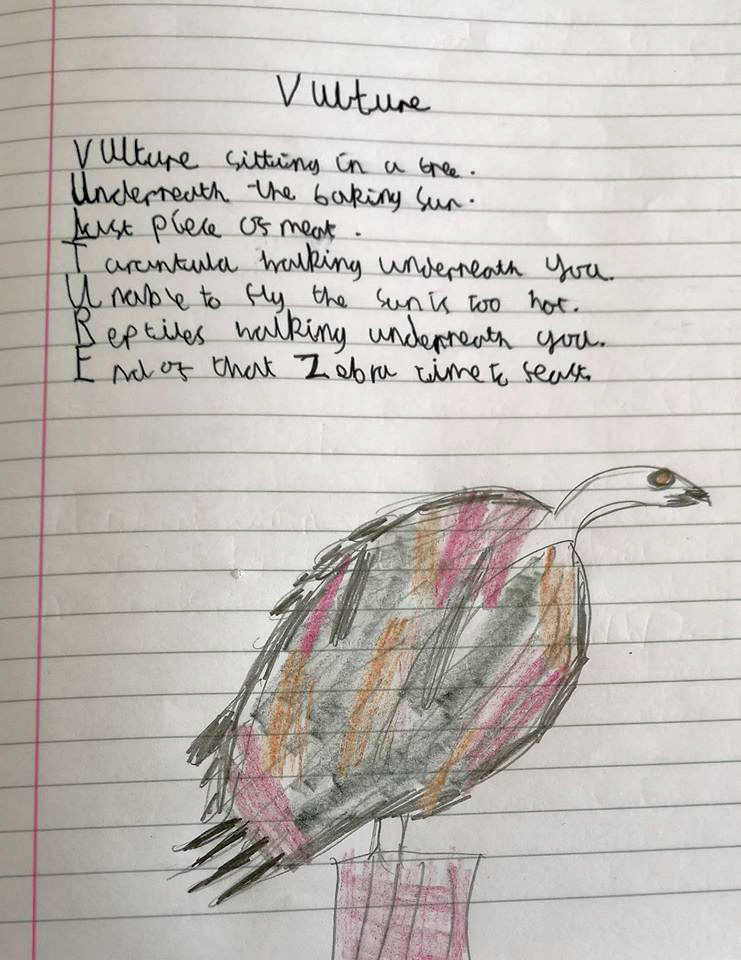 Vulture
Vulture sitting in a tree.
Underneath the baking sun.
Last piece of meat.
Tarantula walking underneath you.
Unable to fly the sun is too hot.
Reptiles walking underneath you.
End of that Zebra time to feast.